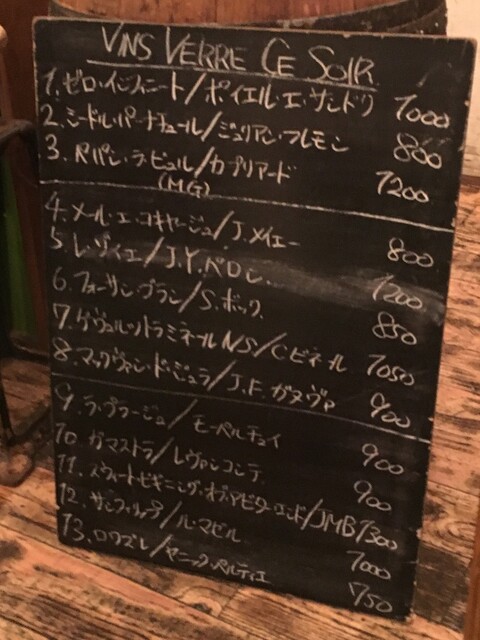 VINS VERRE CE SOIR
1. ゼロ・インフィニート/ポイエル・エ・サンドリ 1000
2. ミードル・パーナチュール/ジュリアン・フレモン 800
3. パパン・ラ・ピュル/カプリアード 1200
(MG)
4. メール・エ・コキヤージュ/J.メイエー 800
5. レ・ヴィエ/J.Y.ペロン 1200
6. フォーサン・ブラン/S.ボック 850
7. ゲヴュルットラミネールNS/Cビネール 1050
8. マックヴァン・ド・ジュラ/J.F.ガヌヴァ 900
9. ラ・プラージュ/モーペルチュイ 900
10. ガマストラ/レヴァンコンテ 900
11. スウィートビギニング・オブ・ア・ビターエンド/JMB 1300
12. サンフィリップ/ル・マビル 1000
13. ロワズレ/ヤニック・ペルティエ 750